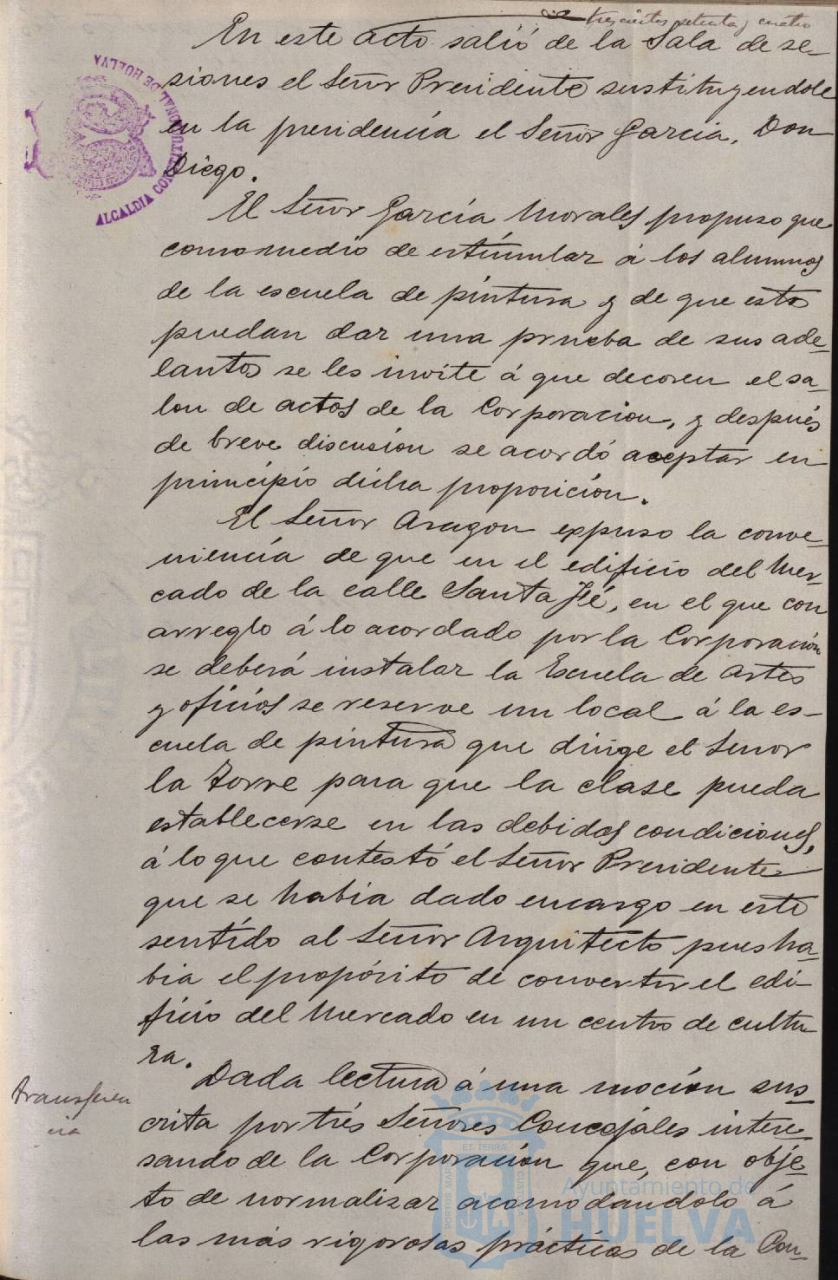 trescientos setenta y cuatro
En este acto salió de la Sala de se-
siones el Señor Presidente sustituyendole
en la presidencia el Señor Garcia, Don
Diego.
El Señor García Morales propuso que
como medio de estimular á los alumnos
de la escuela de pintura y de que esto
puedan dar una prueba de sus ade-
lantos se les invite á que decoren el sa-
lon de actos de la Corporacion, y después
de breve discusión se acordó aceptar en
principio dicha proposición.
El Señor Aragon expuso la conve-
niencia de que en el edificio del Mer-
cado de la calle Santa Fé, en el que con
arreglo á lo acordado por la Corporación
se deberá instalar la Escuela de Artes
y oficios se reserve un local á la es-
cuela de pintura que dirige el Señor
la Torre para que la clase pueda
establecerse en las debidas condiciones,
á lo que contestó el Señor Presidente
que se habia dado encargo en este
sentido al Señor Arquitecto pues ha-
bia el propósito de convertir el edi-
ficio del Mercado en un centro de cultu-
ra.
Transferen
cia
Dada lectura á una moción sus-
crita por trés Señores Concejáles intere-
sando de la Corporación que, con obje-
to de normalizar acomodandolo á
las más rigorosas prácticas de la Con-
ALCALDIA CONSTITUCIONAL DE HUELVA
Ayuntamiento de
HUELVA